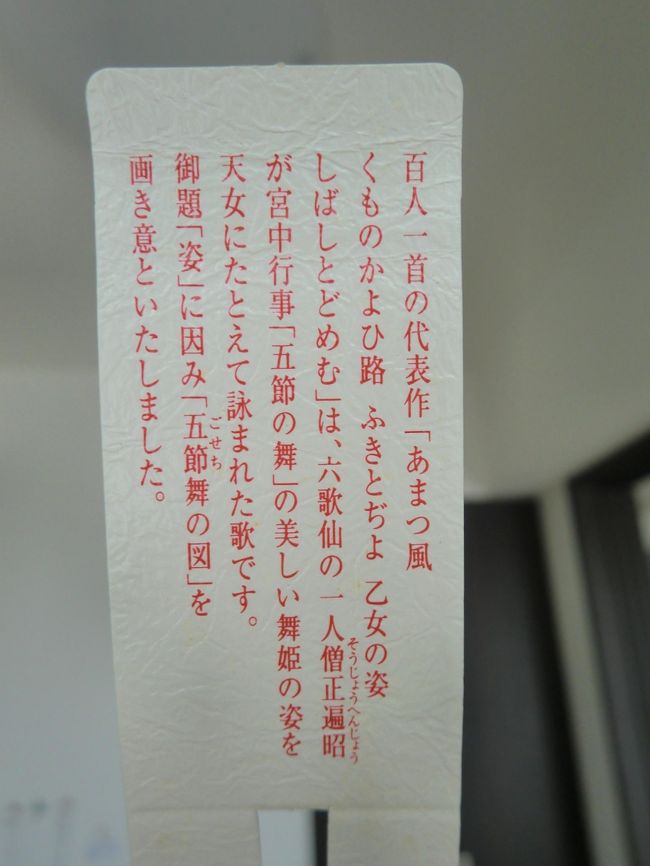 百人一首の代表作「あまつ風
くものかよひ路 ふきとぢよ 乙女の姿
しばしとどめむ」は、六歌仙の一人僧正遍昭
そうじょうへんじょう
が宮中行事「五節の舞」の美しい舞姫の姿を
天女にたとえて詠まれた歌です。
御題「姿」に因み「五節舞の図」を
ごせち
画き意といたしました。